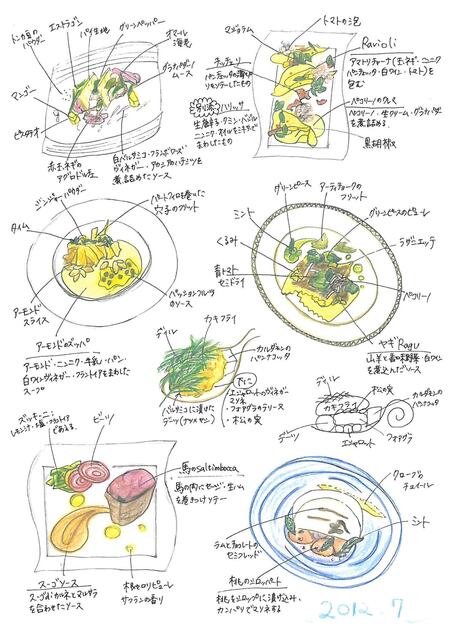 トンカ豆の
パウダー
エストラゴン
パイ生地
グリーンペッパー
オマール
海老
グラナパダーノ
ムース
マンゴー
ピスタチオ
赤玉ネギの
アグロドルチェ
白バルサミコ・フランボワーズ
ヴィネガー・アカシアのハチミツを
煮詰めたソース
マジョラム
トマトの泡
Ravioli
アマトリチャーナ(玉ネギ・ニンニク
パンチェッタ・白ワイン・トマト)を
包む
パンチェッタの薄切り
別添 ハリッサ
生唐辛子・クミン・バジル
ニンニク・オイルをミキサーで
まわしたもの
ペコリーノのクレマ
ペコリーノ・生クリーム・グラナパダーノ
を煮詰める
黒胡椒
ジンジャー
パウダー
パートフィロを巻いた
穴子のフリット
タイム
アーモンド
スライス
パッションフルーツ
のソース
アーモンドのズッパ
アーモンド・ニンニク・牛乳・パン
白ワインヴィネガー・フラントイアをまわした
スープ
グリーンピース
アーティチョークの
フリット
グリーンピースのピューレ
ミント
くるみ
ラザニェッテ
青トマト
セミドライ
ペコリーノ
ヤギRagu
山羊と香味野菜・白ワイン
を煮込んだソース
ディル
カキフライ
カルダモンの
パンナコッタ
バルサミコに漬けた
デーツ(ナツメヤシ)
エシャロットのヴィネガー
マリネ
・フォアグラのテリーヌ
・松の実
ディル
松の実
カキフライ
カルダモンの
パンナコッタ
デーツ
エシャロット
フォアグラ
ズッキーニ:
レモン汁・塩・フラントイア
であえる
ビーツ
馬のsaltimbocca
馬の肉にセージ・生ハム
を巻きつけソテー
スーゴソース
スーゴ・ディ・カルネとマルサラ
を合わせたソース
根セロリピューレ
サフランの香り
クローブの
チュイール
ミント
ラムとチョコレートの
セミフレッド
桃のシロッパート
桃をシロップに漬け込み、
カンパリでマリネする
2012.7